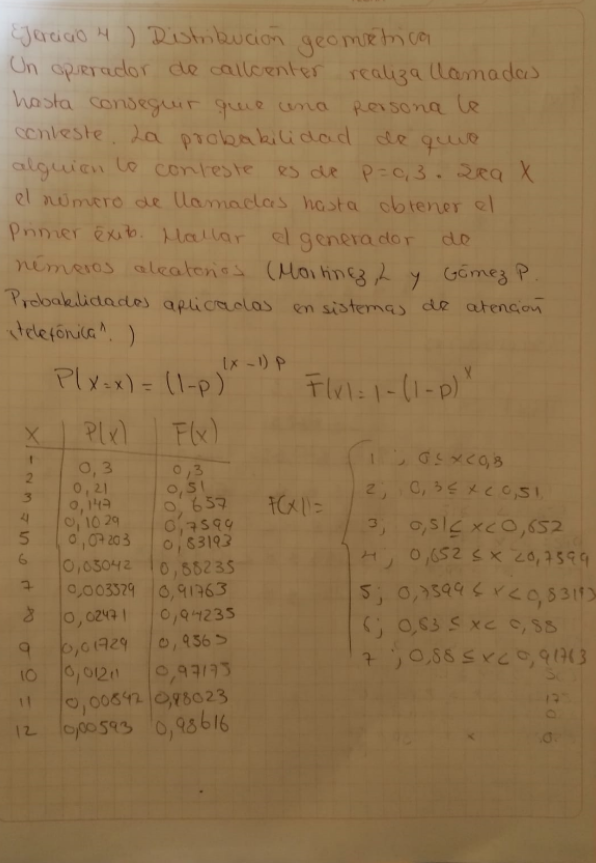 Ejercicio 4) Distribución geométrica
Un operador de callcenter realiza llamadas
hasta conseguir que una persona le
conteste. La probabilidad de que
alguien le conteste es de P=0,3. Sea X
el número de llamadas hasta obtener el
primer éxito. Hallar el generador de
números aleatorios (Martínez L y Gómez P.
Probabilidades aplicadas en sistemas de atención
telefónica".)
P(X=x) = (1-p)^(x-1) p F(x) = 1-(1-p)^x
X P(x) F(x)
1 0,3 0,3
2 0,21 0,51
3 0,147 0,657
4 0,1029 0,7599
5 0,07203 0,83193
6 0,05042 0,88235
7 0,003529 0,91763
8 0,02471 0,94235
9 0,01729 0,9565
10 0,01211 0,97175
11 0,00842 0,98023
12 0,00593 0,98616
F(x)=
1 ; 0 ≤ x < 0,3
2; 0,3 ≤ x < 0,51
3; 0,51 ≤ x < 0,652
4; 0,652 ≤ x < 0,7599
5; 0,7599 ≤ x < 0,83193
6; 0,83 ≤ x < 0,88
7 ; 0,88 ≤ x < 0,91763